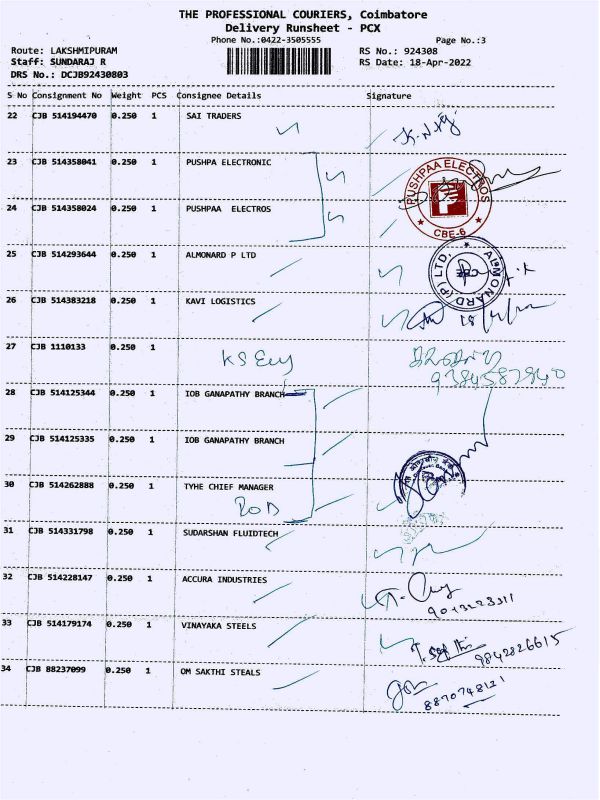 THE PROFESSIONAL COURIERS, Coimbatore
Delivery Runsheet - PCX
Phone No.:0422-3505555 Page No.:3
Route: LAKSHMIPURAM RS No.: 924308
Staff: SUNDARAJ R RS Date: 18-Apr-2022
DRS No.: DCJB92430803
S No Consignment No Weight PCS Consignee Details Signature
22 CJB 514194470 0.250 1 SAI TRADERS
23 CJB 514358041 0.250 1 PUSHPA ELECTRONIC
PUSHPAA ELECTROS
CBE-6
24 CJB 514358024 0.250 1 PUSHPAA ELECTROS
25 CJB 514293644 0.250 1 ALMONARD P LTD
ALMONARD (P) LTD.
26 CJB 514383218 0.250 1 KAVI LOGISTICS
27 CJB 1110133 0.250 1
28 CJB 514125344 0.250 1 IOB GANAPATHY BRANCH
29 CJB 514125335 0.250 1 IOB GANAPATHY BRANCH
30 CJB 514262888 0.250 1 TYHE CHIEF MANAGER
31 CJB 514331798 0.250 1 SUDARSHAN FLUIDTECH
32 CJB 514228147 0.250 1 ACCURA INDUSTRIES
33 CJB 514179174 0.250 1 VINAYAKA STEELS
9842826615
34 CJB 88237099 0.250 1 OM SAKTHI STEALS
8870748121